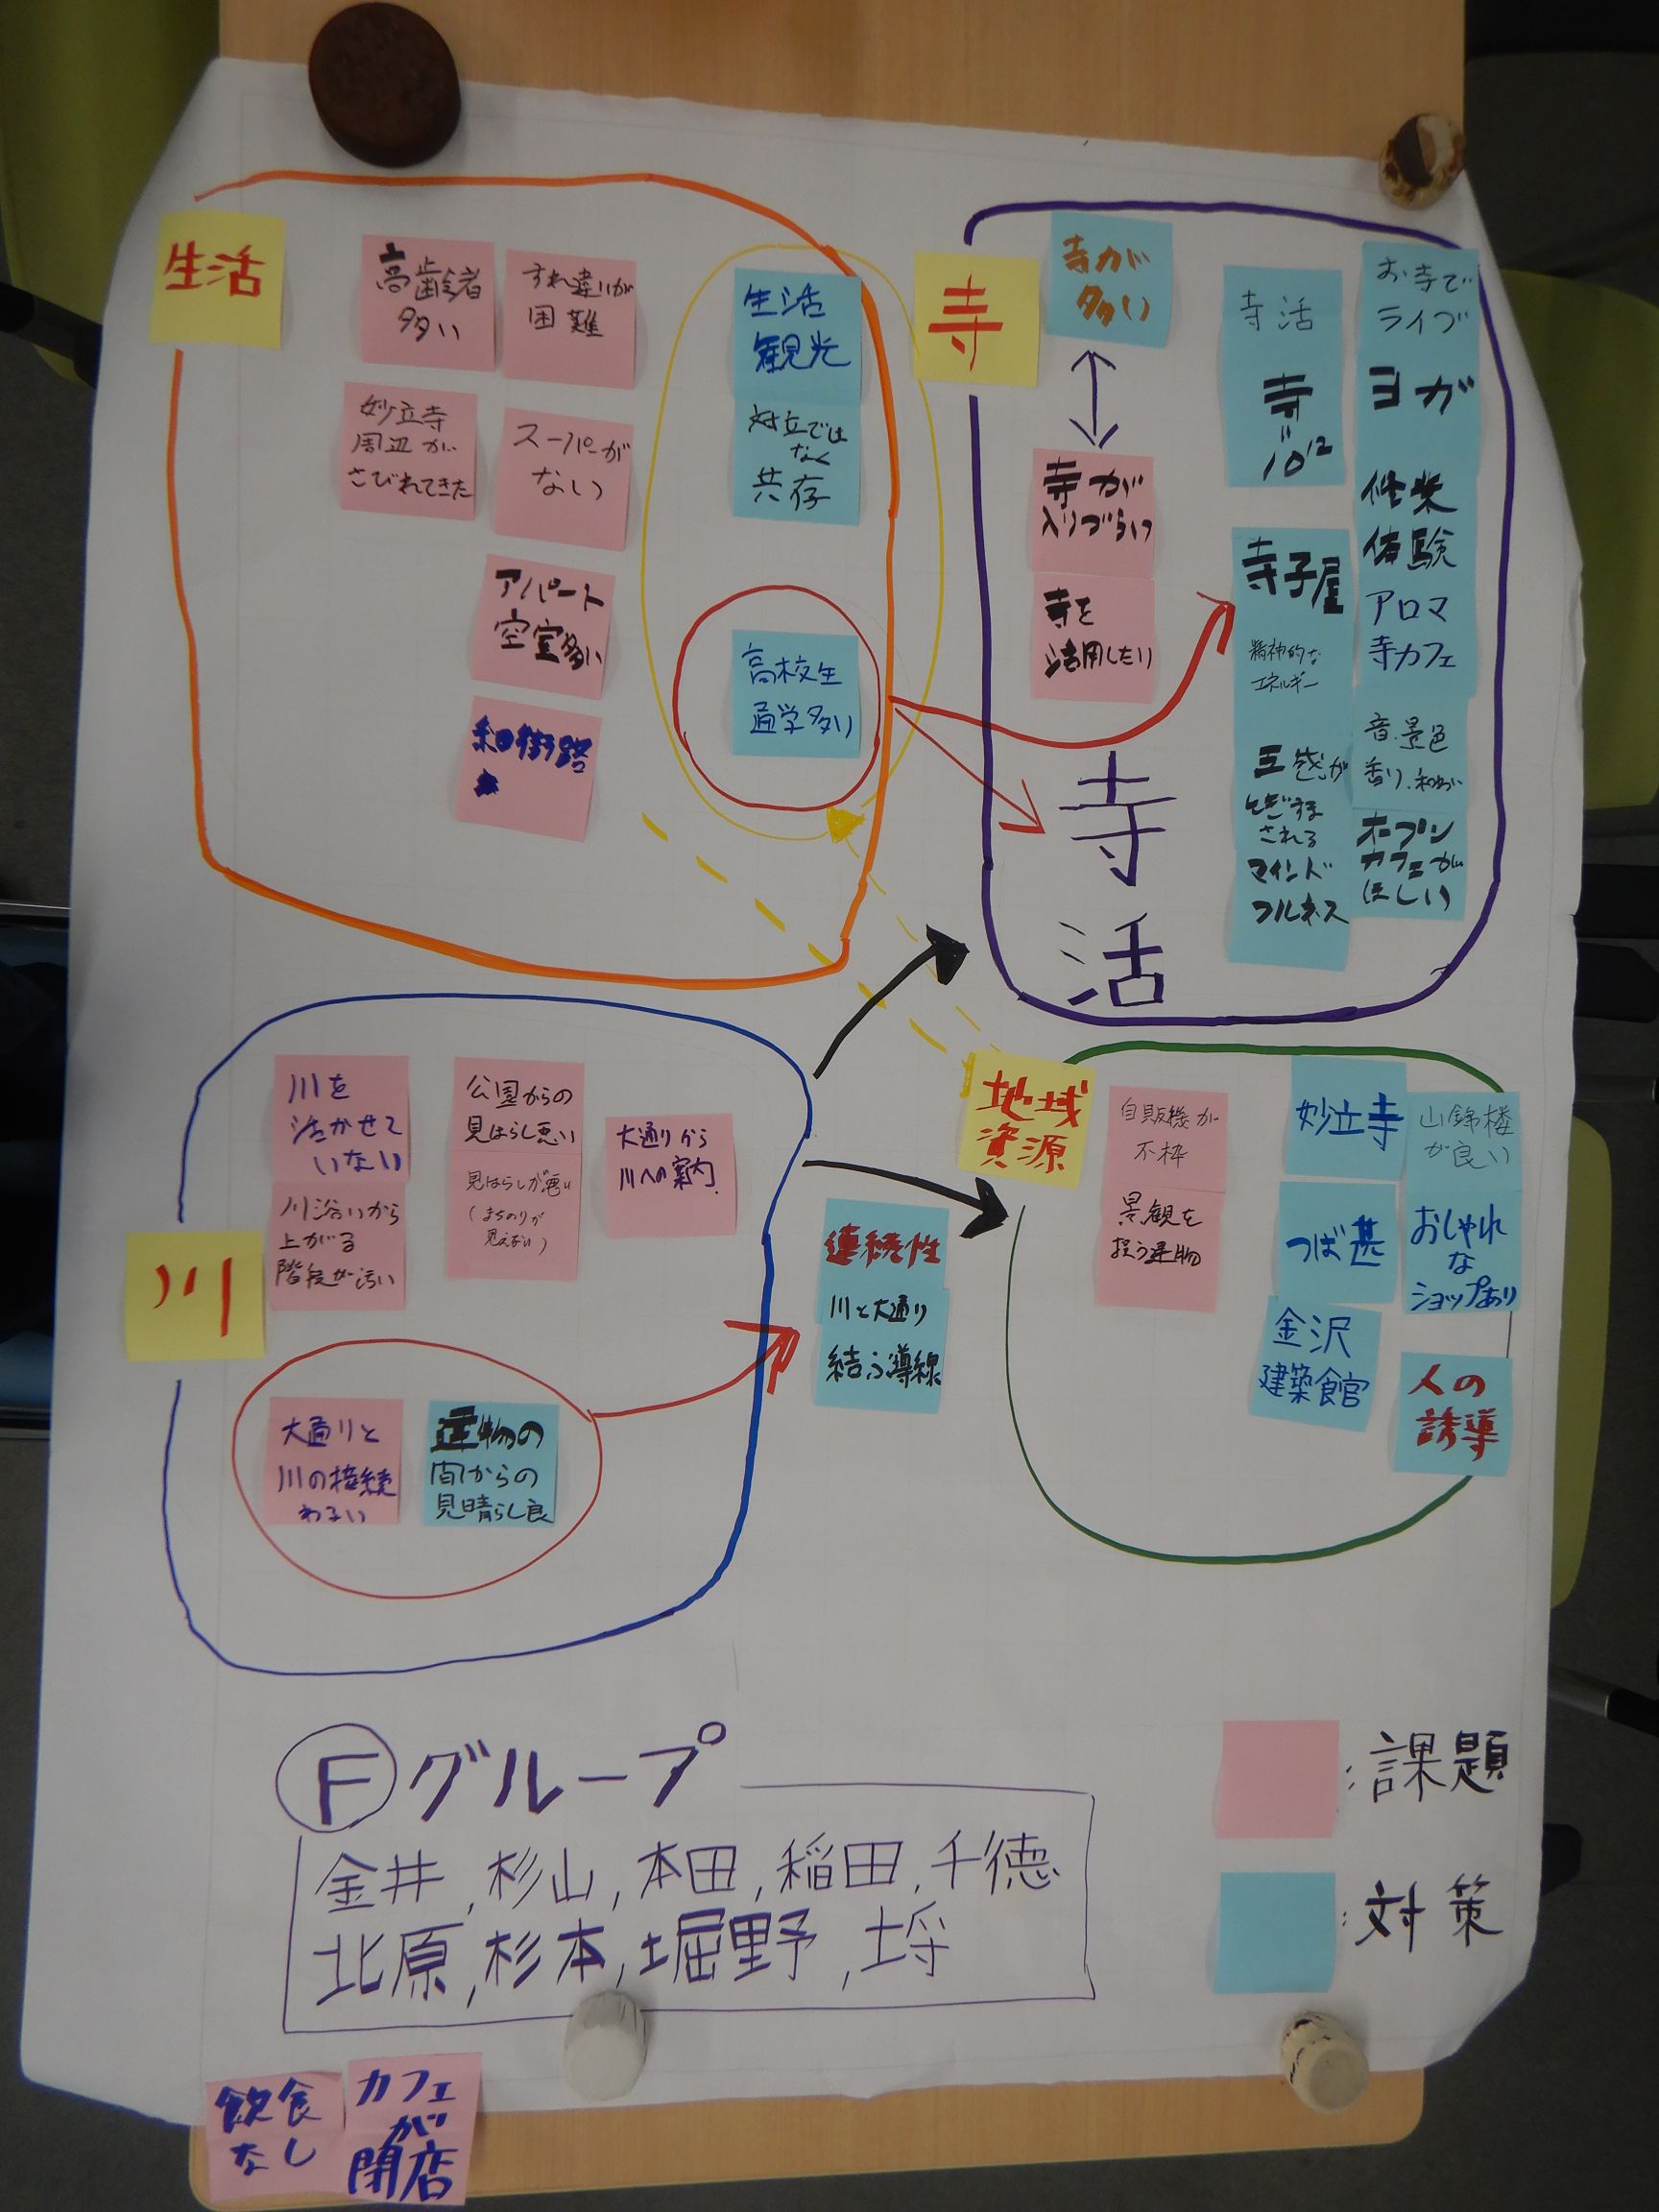 生活
高齢者
多い
すれ違いが
困難
妙立寺
周辺が
さびれてきた
スーパーが
ない
アパート
空室多い
細街路
生活
観光
対立では
なく
共存
高校生
通学多い
寺
寺が
多い
寺が
入りづらい
寺を
活用したい
寺活
寺子屋
精神的な
エネルギー
五感が
とぎすま
される
マインド
フルネス
お寺で
ライブ
ヨガ
修業
体験
アロマ
寺カフェ
音.景色
香り.味わい
オープン
カフェが
ほしい
寺
活
川
川を
活かせて
いない
川沿いから
上がる
階段が汚い
公園からの
見はらし悪い
見はらしが悪い
(まちのりが
見えない)
大通りから
川への案内
大通りと
川の接続
わるい
建物の
間からの
見晴らし良
連続性
川と大通り
結ぶ導線
地域
資源
自販機が
不粋
景観を
損う建物
妙立寺
つば甚
金沢
建築館
山錦楼
が良い
おしゃれ
な
ショップあり
人の
誘導
Ⓕグループ
金井,杉山,本田,稲田,千徳
北原,杉本,堀野,
:課題
:対策
飲食
なし
カフェ
が
閉店